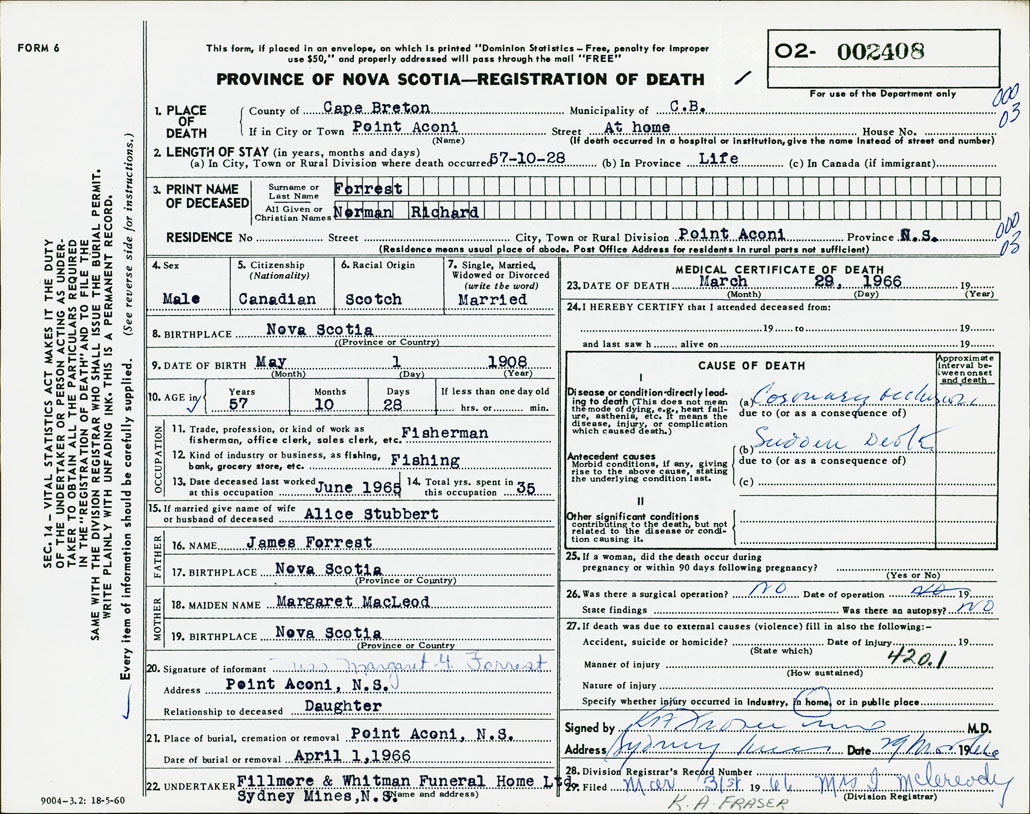 FORM 6
This form, if placed in an envelope, on which is printed "Dominion Statistics – Free, penalty for improper
use $50," and properly addressed will pass through the mail "FREE"
PROVINCE OF NOVA SCOTIA—REGISTRATION OF DEATH
02- 002408
For use of the Department only
000
03
1. PLACE OF DEATH
County of Cape Breton Municipality of C.B.
If in City or Town Point Aconi Street At home House No.
(Name) (If death occurred in a hospital or institution, give the name instead of street and number)
2. LENGTH OF STAY (in years, months and days)
(a) In City, Town or Rural Division where death occurred 57-10-28 (b) In Province Life (c) In Canada (if immigrant)
3. PRINT NAME OF DECEASED
Surname or Last Name Forrest
All Given or Christian Names Norman Richard
RESIDENCE No Street City, Town or Rural Division Point Aconi Province N.S.
(Residence means usual place of abode. Post Office Address for residents in rural parts not sufficient)
000
03
4. Sex
Male
5. Citizenship
(Nationality)
Canadian
6. Racial Origin
Scotch
7. Single, Married,
Widowed or Divorced
(write the word)
Married
8. BIRTHPLACE Nova Scotia
((Province or Country)
9. DATE OF BIRTH May 1 1908
(Month) (Day) (Year)
10. AGE in Years Months Days If less than one day old
57 10 28 hrs. or min.
OCCUPATION
11. Trade, profession, or kind of work as
fisherman, office clerk, sales clerk, etc. Fisherman
12. Kind of industry or business, as fishing,
bank, grocery store, etc. Fishing
13. Date deceased last worked
at this occupation June 1965
14. Total yrs. spent in
this occupation 35
15. If married give name of wife
or husband of deceased Alice Stubbert
FATHER
16. NAME James Forrest
17. BIRTHPLACE Nova Scotia
(Province or Country)
MOTHER
18. MAIDEN NAME Margaret MacLeod
19. BIRTHPLACE Nova Scotia
(Province or Country)
20. Signature of informant Miss Margaret Y. Forrest
Address Point Aconi, N.S.
Relationship to deceased Daughter
21. Place of burial, cremation or removal Point Aconi, N.S.
Date of burial or removal April 1,1966
22. UNDERTAKER Fillmore & Whitman Funeral Home Ltd.
Sydney Mines, N.S. (Name and address)
MEDICAL CERTIFICATE OF DEATH
23. DATE OF DEATH March 29, 1966 19
(Month) (Day) (Year)
24. I HEREBY CERTIFY that I attended deceased from:
19 to 19
and last saw h alive on 19
CAUSE OF DEATH
Approximate
interval be-
tween onset
and death
I
Disease or condition directly lead-
ing to death (This does not mean
the mode of dying, e.g., heart fail-
ure, asthenia, etc. It means the
disease, injury, or complication
which caused death.)
(a) Coronary occlusion
due to (or as a consequence of)
(b) Sudden Death
due to (or as a consequence of)
(c)
Antecedent causes
Morbid conditions, if any, giving
rise to the above cause, stating
the underlying condition last.
II
Other significant conditions
contributing to the death, but not
related to the disease or condi-
tion causing it.
25. If a woman, did the death occur during
pregnancy or within 90 days following pregnancy?
(Yes or No)
26. Was there a surgical operation? NO Date of operation NO 19
State findings Was there an autopsy? NO
27. If death was due to external causes (violence) fill in also the following:–
Accident, suicide or homicide? Date of injury 19
(State which)
420.1
Manner of injury
(How sustained)
Nature of injury
Specify whether injury occurred in Industry, in home, or in public place
Signed by M.D.
Address Sydney Mines Date 29 Mar 1966
28. Division Registrar's Record Number
29. Filed Mar 31st 1966 Mrs J McCready
(Division Registrar)
K. A. FRASER
9004-3.2: 18-5-60
SEC. 14 – VITAL STATISTICS ACT MAKES IT THE DUTY
OF THE UNDERTAKER OR PERSON ACTING AS UNDER-
TAKER TO OBTAIN ALL THE PARTICULARS REQUIRED
IN THE "REGISTRATION OF DEATH" AND TO FILE THE
SAME WITH THE DIVISION REGISTRAR WHO SHALL ISSUE THE BURIAL PERMIT.
WRITE PLAINLY WITH UNFADING INK. THIS IS A PERMANENT RECORD.
Every item of information should be carefully supplied. (See reverse side for instructions.)